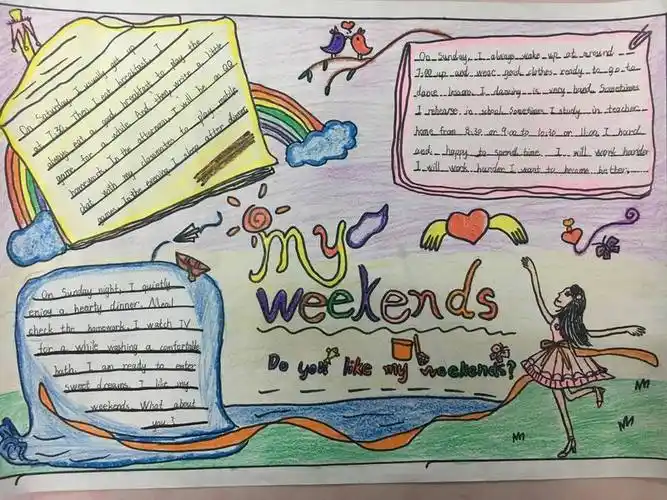 On Saturday, I usually get up
at 7:30. Then I eat breakfast. I
always eat a good breakfast to play the
game for a while. And then write a little
homework. In the afternoon, I will be on QQ
chat with my classmates to play mobile
game. In the evening I sleep after dinner
On Sunday, I always wake up at around
7:00 up and wear good clothes ready to go to
dance lessons. I dancing is very hard. Sometimes
I rehearse in school. Sometimes I study in teacher
home from 8:30 or 9:00 to 10:30 or 11:00, I
and happy to spend time. I will work harder
I will work harder. I want to become better.
my
weekends
Do you like my weekends?
On Sunday night, I quietly
enjoy a hearty dinner. Meal
check the homework. I watch TV
for a while washing a comfortable
bath. I am ready to enter
sweet dreams. I like my
weekends. What about
you?